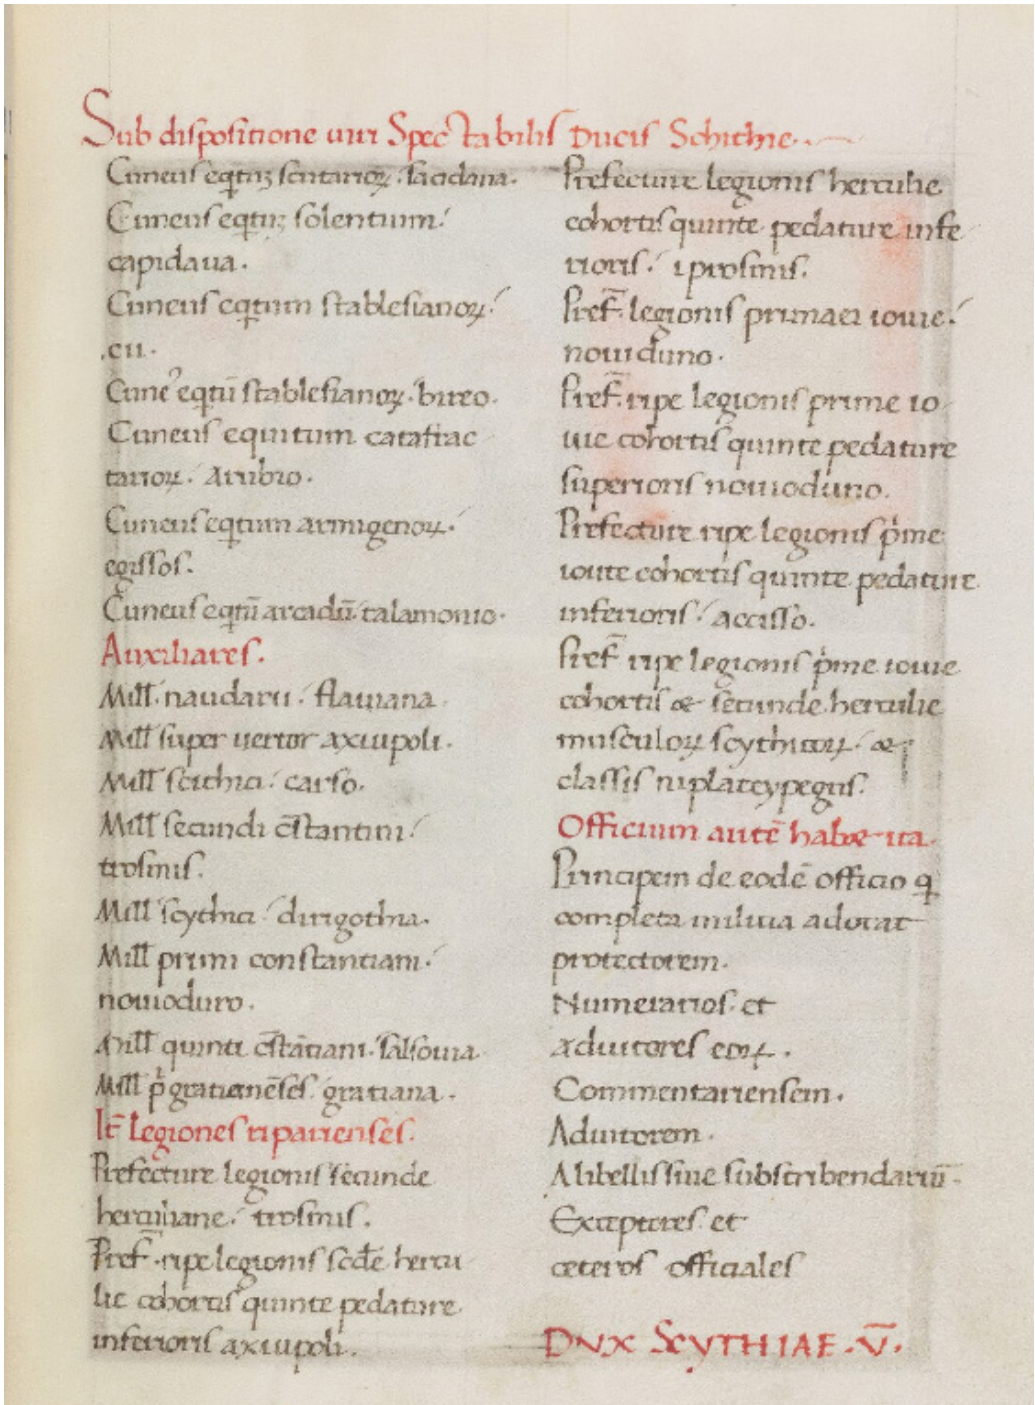 Sub dispositione uiri Spectabilis Ducis Schithie.
Cuneus eq̅tuʒ scutarioꝝ. sacidana.
Cuneus eq̅tuʒ solentium.
capidaua.
Cuneus eq̅tum stablesianoꝝ.
.cii.
Cune⁹ eq̅tū stablesianoꝝ. bireo.
Cuneus equitum catafrac
tarioꝝ. Arubio.
Cuneus eq̅tum armigeroꝝ.
egissos.
Cuneus eq̅tū arcadū. talamonio.
Auxiliares.
Mill̅. naudarii. flauiana.
Mill̅ super uertor axiupoli.
Mill̅ scithici. carso.
Mill̅ secundi c̅stantini.
trosmis.
Mill̅ scythici. dirigothia.
Mill̅ primi constantiani.
nouioduro.
Mill̅ quinti c̅stātiani. salsouia.
Mill̅ p̍ gratianēses. gratiana.
It̅ Legiones riparienses.
Prefecture legionis secunde
herculiane. trosmis.
Pref̅. ripe legionis scd̅e hercu
lie cohortis quinte pedature
inferioris axiupoli.
Prefecture legionis herculie
cohortis quinte pedature infe
rioris. iprosmis.
Pref̅. legionis primaei iouie.
nouiduno.
Pref̅. ripe legionis prime io
uie cohortis quinte pedature
superioris nouioduno.
Prefecture ripe legionis p̍me
iouie cohortis quinte pedature
inferioris. accisso.
Pref̅ ripe legionis p̍me iouie
cohortis & secunde herculie
musculoꝝ scythicoꝝ. &
classis inplateypegiis.
Officium autē habet ita.
Principem de eodē officio q̅
completa militia adorat
protectorem.
Numerarios. et
adiutores eoꝝ.
Commentariensem.
Adiutorem.
A libellis siue subscribendariū.
Exceptores. et
ceteros officiales
DUX SCYTHIAE. V̅.